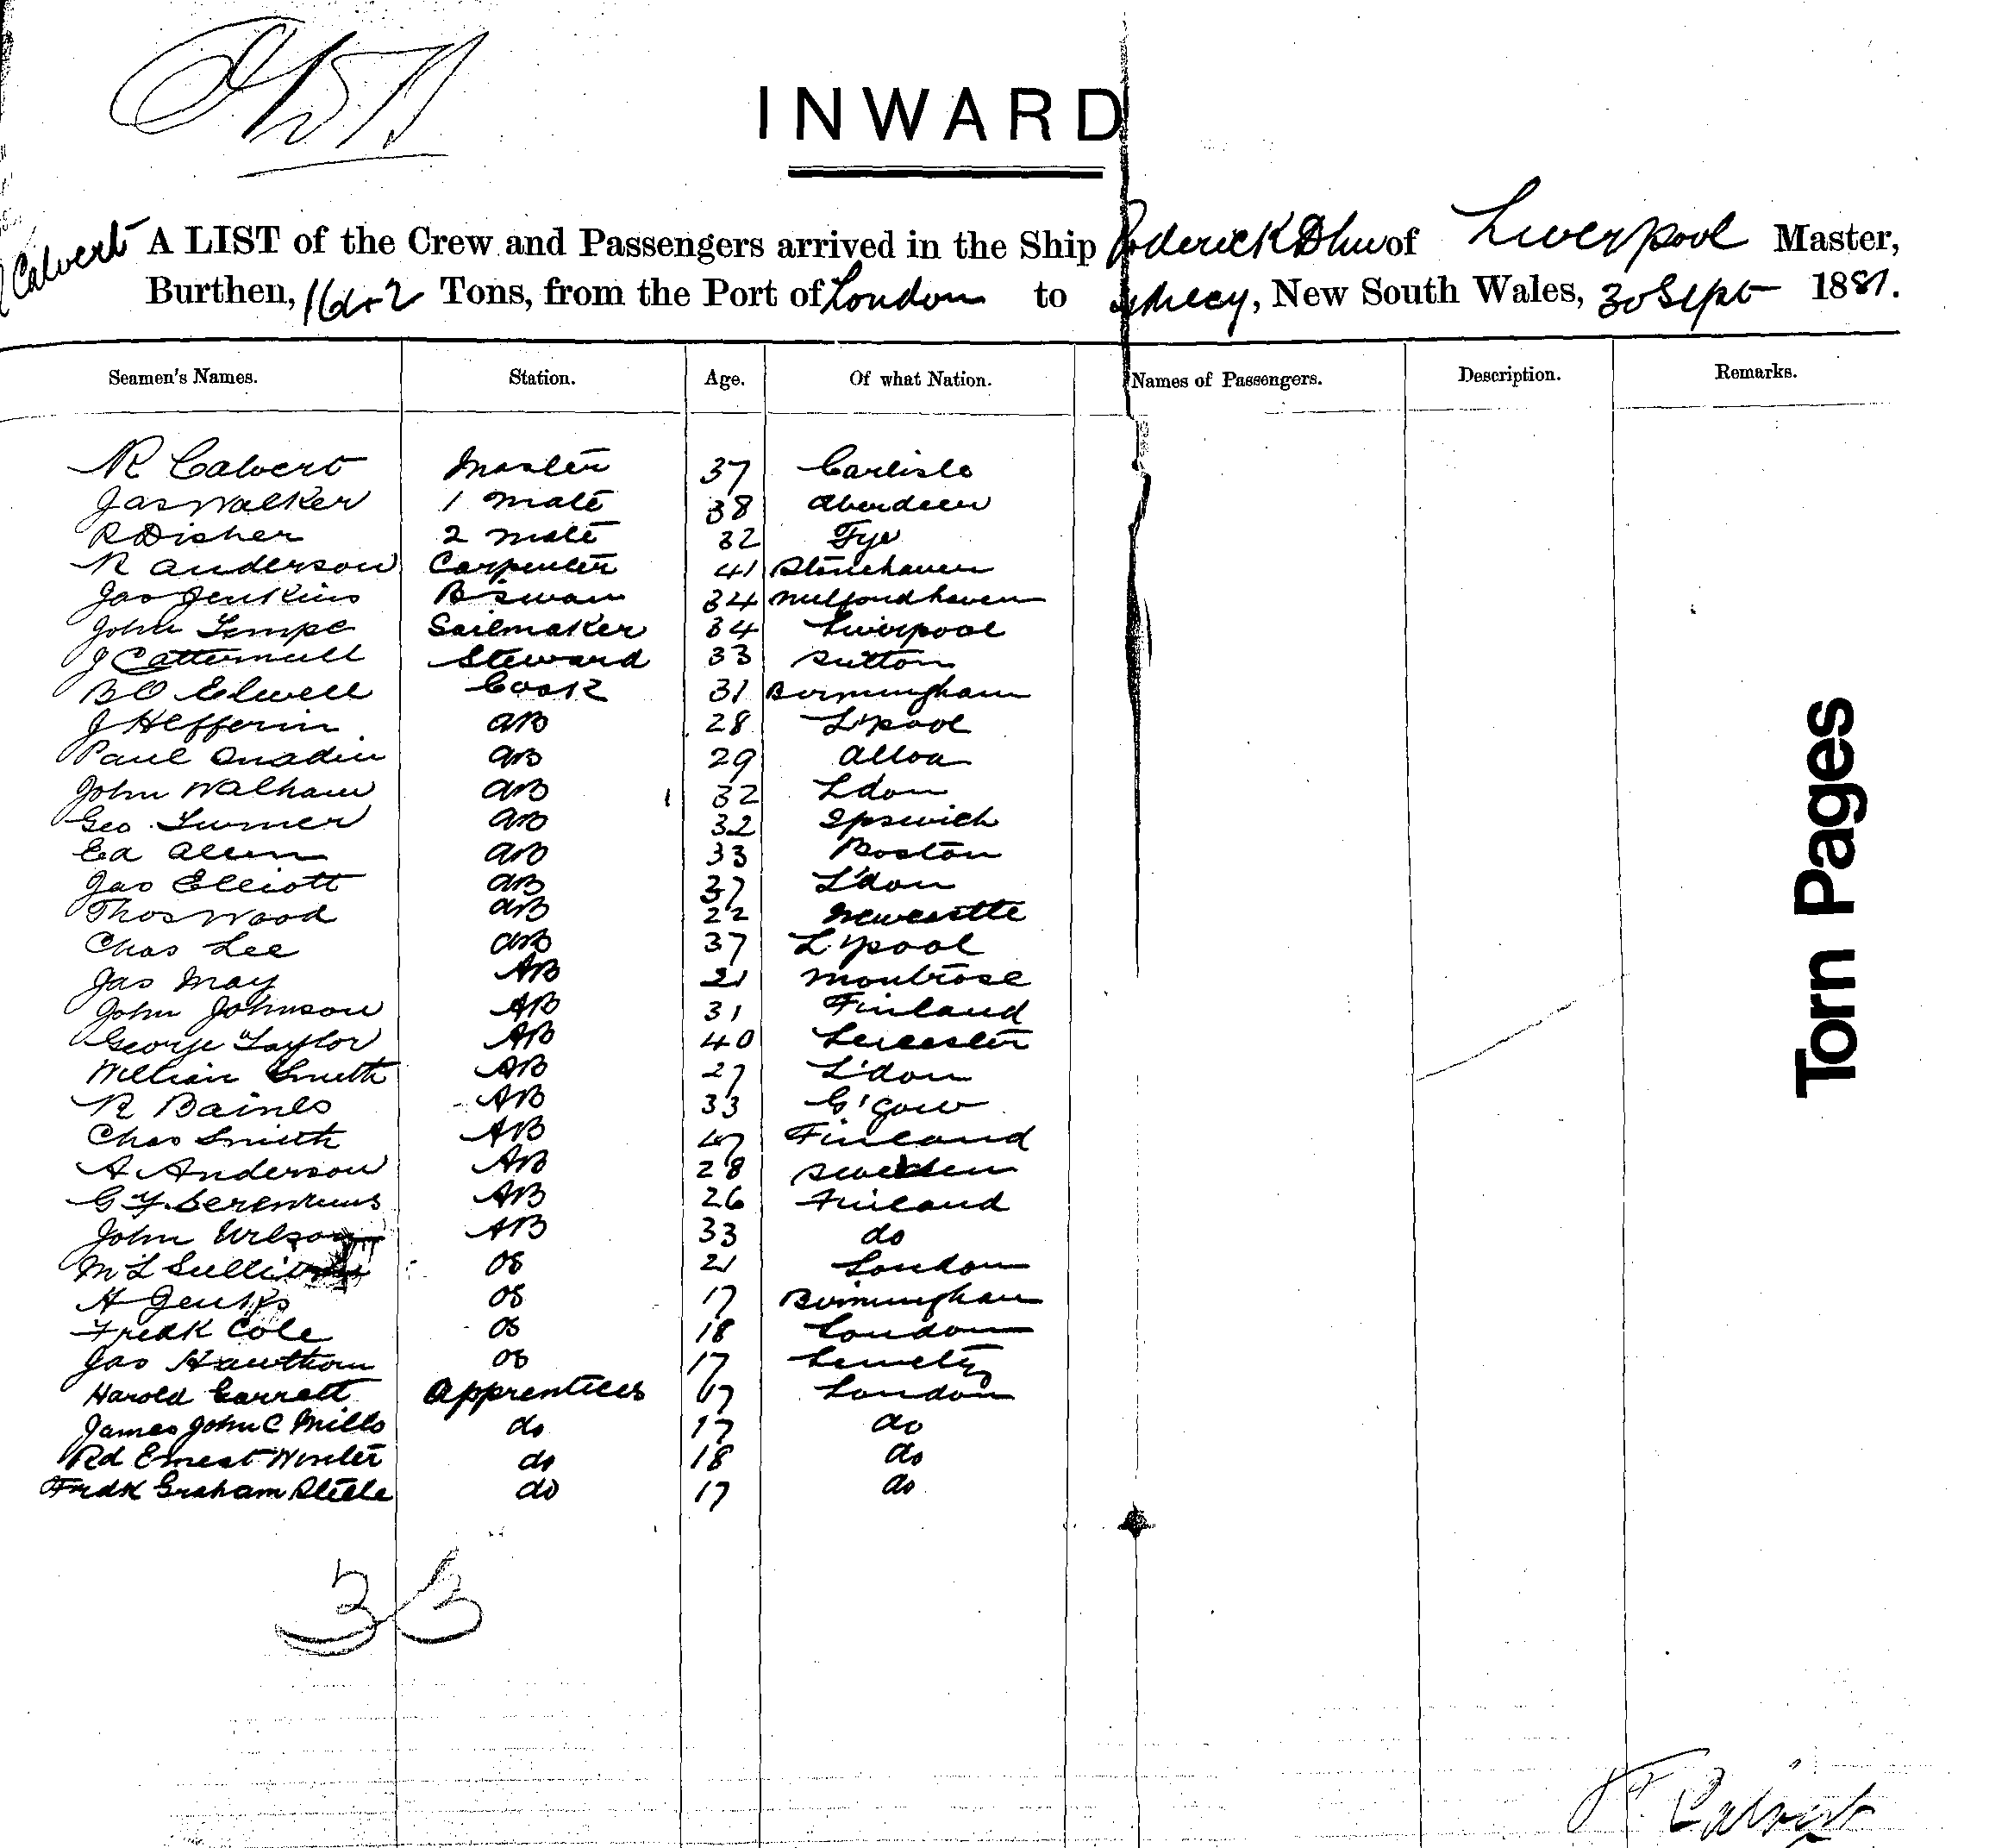 INWARD
Calvert A LIST of the Crew and Passengers arrived in the Ship Roderick Dhu of Liverpool Master,
Burthen, Tons, from the Port of London to Sydney, New South Wales, 30 Sept 1881.
Seamen's Names. Station. Age. Of what Nation. Names of Passengers. Description. Remarks.
R Calvert Master 37 Carlisle
Jas Walker 1 Mate 38 Aberdeen
R Disher 2 Mate 32 Fye
R Anderson Carpenter 41 Stonehaven
Jas Jenkins Bswan 34 Milfordhaven
John Tempe Sailmaker 34 Liverpool
J Cattermull Steward 33 Sutton
B O Elwell Cook 31 Birmingham
J Hefferin AB 28 L'pool
Paul AB 29 Alloa
John Walham AB 32 Ldon
Geo Turner AB 32 Ipswich
Ed Allen AB 33 Boston
Jas Elliott AB 37 L'don
Thos Wood AB 22 Newcastle
Chas Lee AB 37 L'pool
Jas May AB 21 Montrose
John Johnson AB 31 Finland
George Taylor AB 40 Leicester
William Smith AB 27 L'don
R Baines AB 33 G'gow
Chas Smith AB 47 Finland
A Anderson AB 28 Sweden
G F AB 26 Finland
John AB 33 do
M L Sullivan OS 21 London
H Jenks OS 17 Birmingham
Fredk Cole OS 18 London
Jas Hawthorn OS 17
Harold Garratt Apprentices 17 London
James John C Mills do 17 do
Rd Ernest Winter do 18 do
Fredk Graham Steele do 17 do
33
R. Calvert
Torn Pages